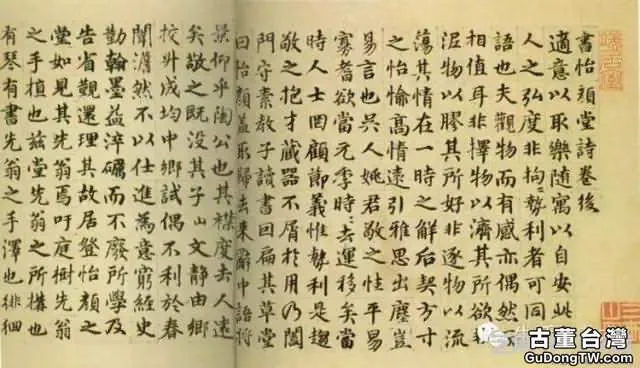 書怡顏堂詩卷後
適意以取樂隨寓以自安此
人之弘度非拘〻勢利者可同
語也夫觀物而有感亦偶然
相值耳非擇物以濟其所欲非
泥物以膠其所好非逐物以流
蕩其情在一時之解后契方寸
之怡愉高情遠引雅思出塵豈
易言也吳人姚君敬之性平易
寡嗜欲當元季時去運移矣當
時人士罔顧節義惟勢利是趨
敬之抱才藏器不屑於用乃闔
門守素教子讀書囙扁其草堂
曰怡顏蓋取歸去來辭中語將
景仰乎陶公也其襟度去人遠
矣敬之既沒其子山文靜由鄉
挍升成均中鄉試偶不利於春
闈澹然不以仕進為意窮經史
勤翰墨益淬礪而不廢所學及
告省覲還理其故居登怡顏之
堂如見其先翁焉吁庭樹先翁
之手植也茲堂先翁之所構也
有琴有書先翁之手澤也徘徊
古董台灣
GuDongTW.com